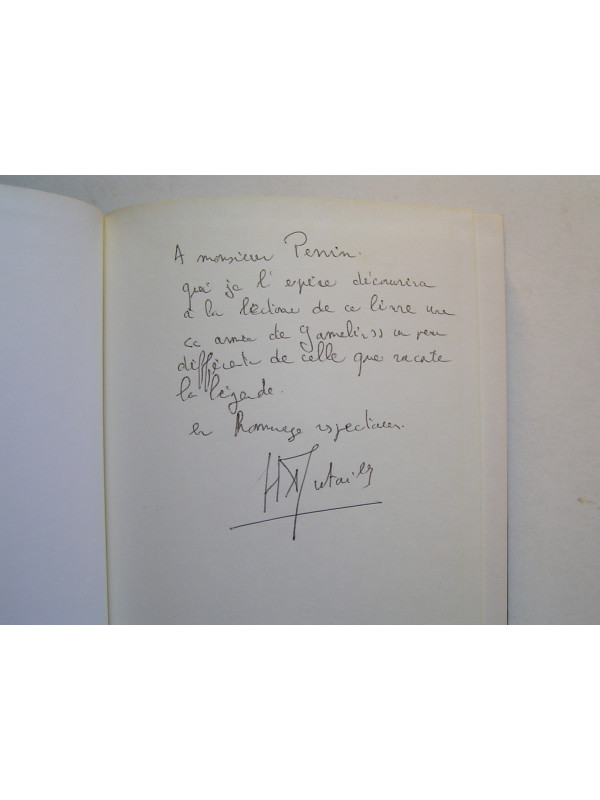 A monsieur Perrin.
qui je l'espère découvrira
à la lecture de ce livre une
armée de Gamelin un peu
différente de celle que raconte
la légende.
en hommage respectueux.